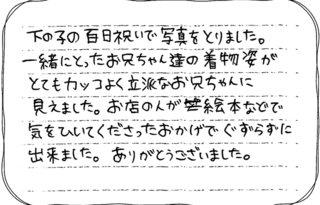 下の子の百日祝いで写真をとりました。
一緒にとったお兄ちゃん達の着物姿が
とてもカッコよく立派なお兄ちゃんに
見えました。お店の人が絵本などで
気をひいてくださったおかげでぐずらずに
出来ました。ありがとうございました。